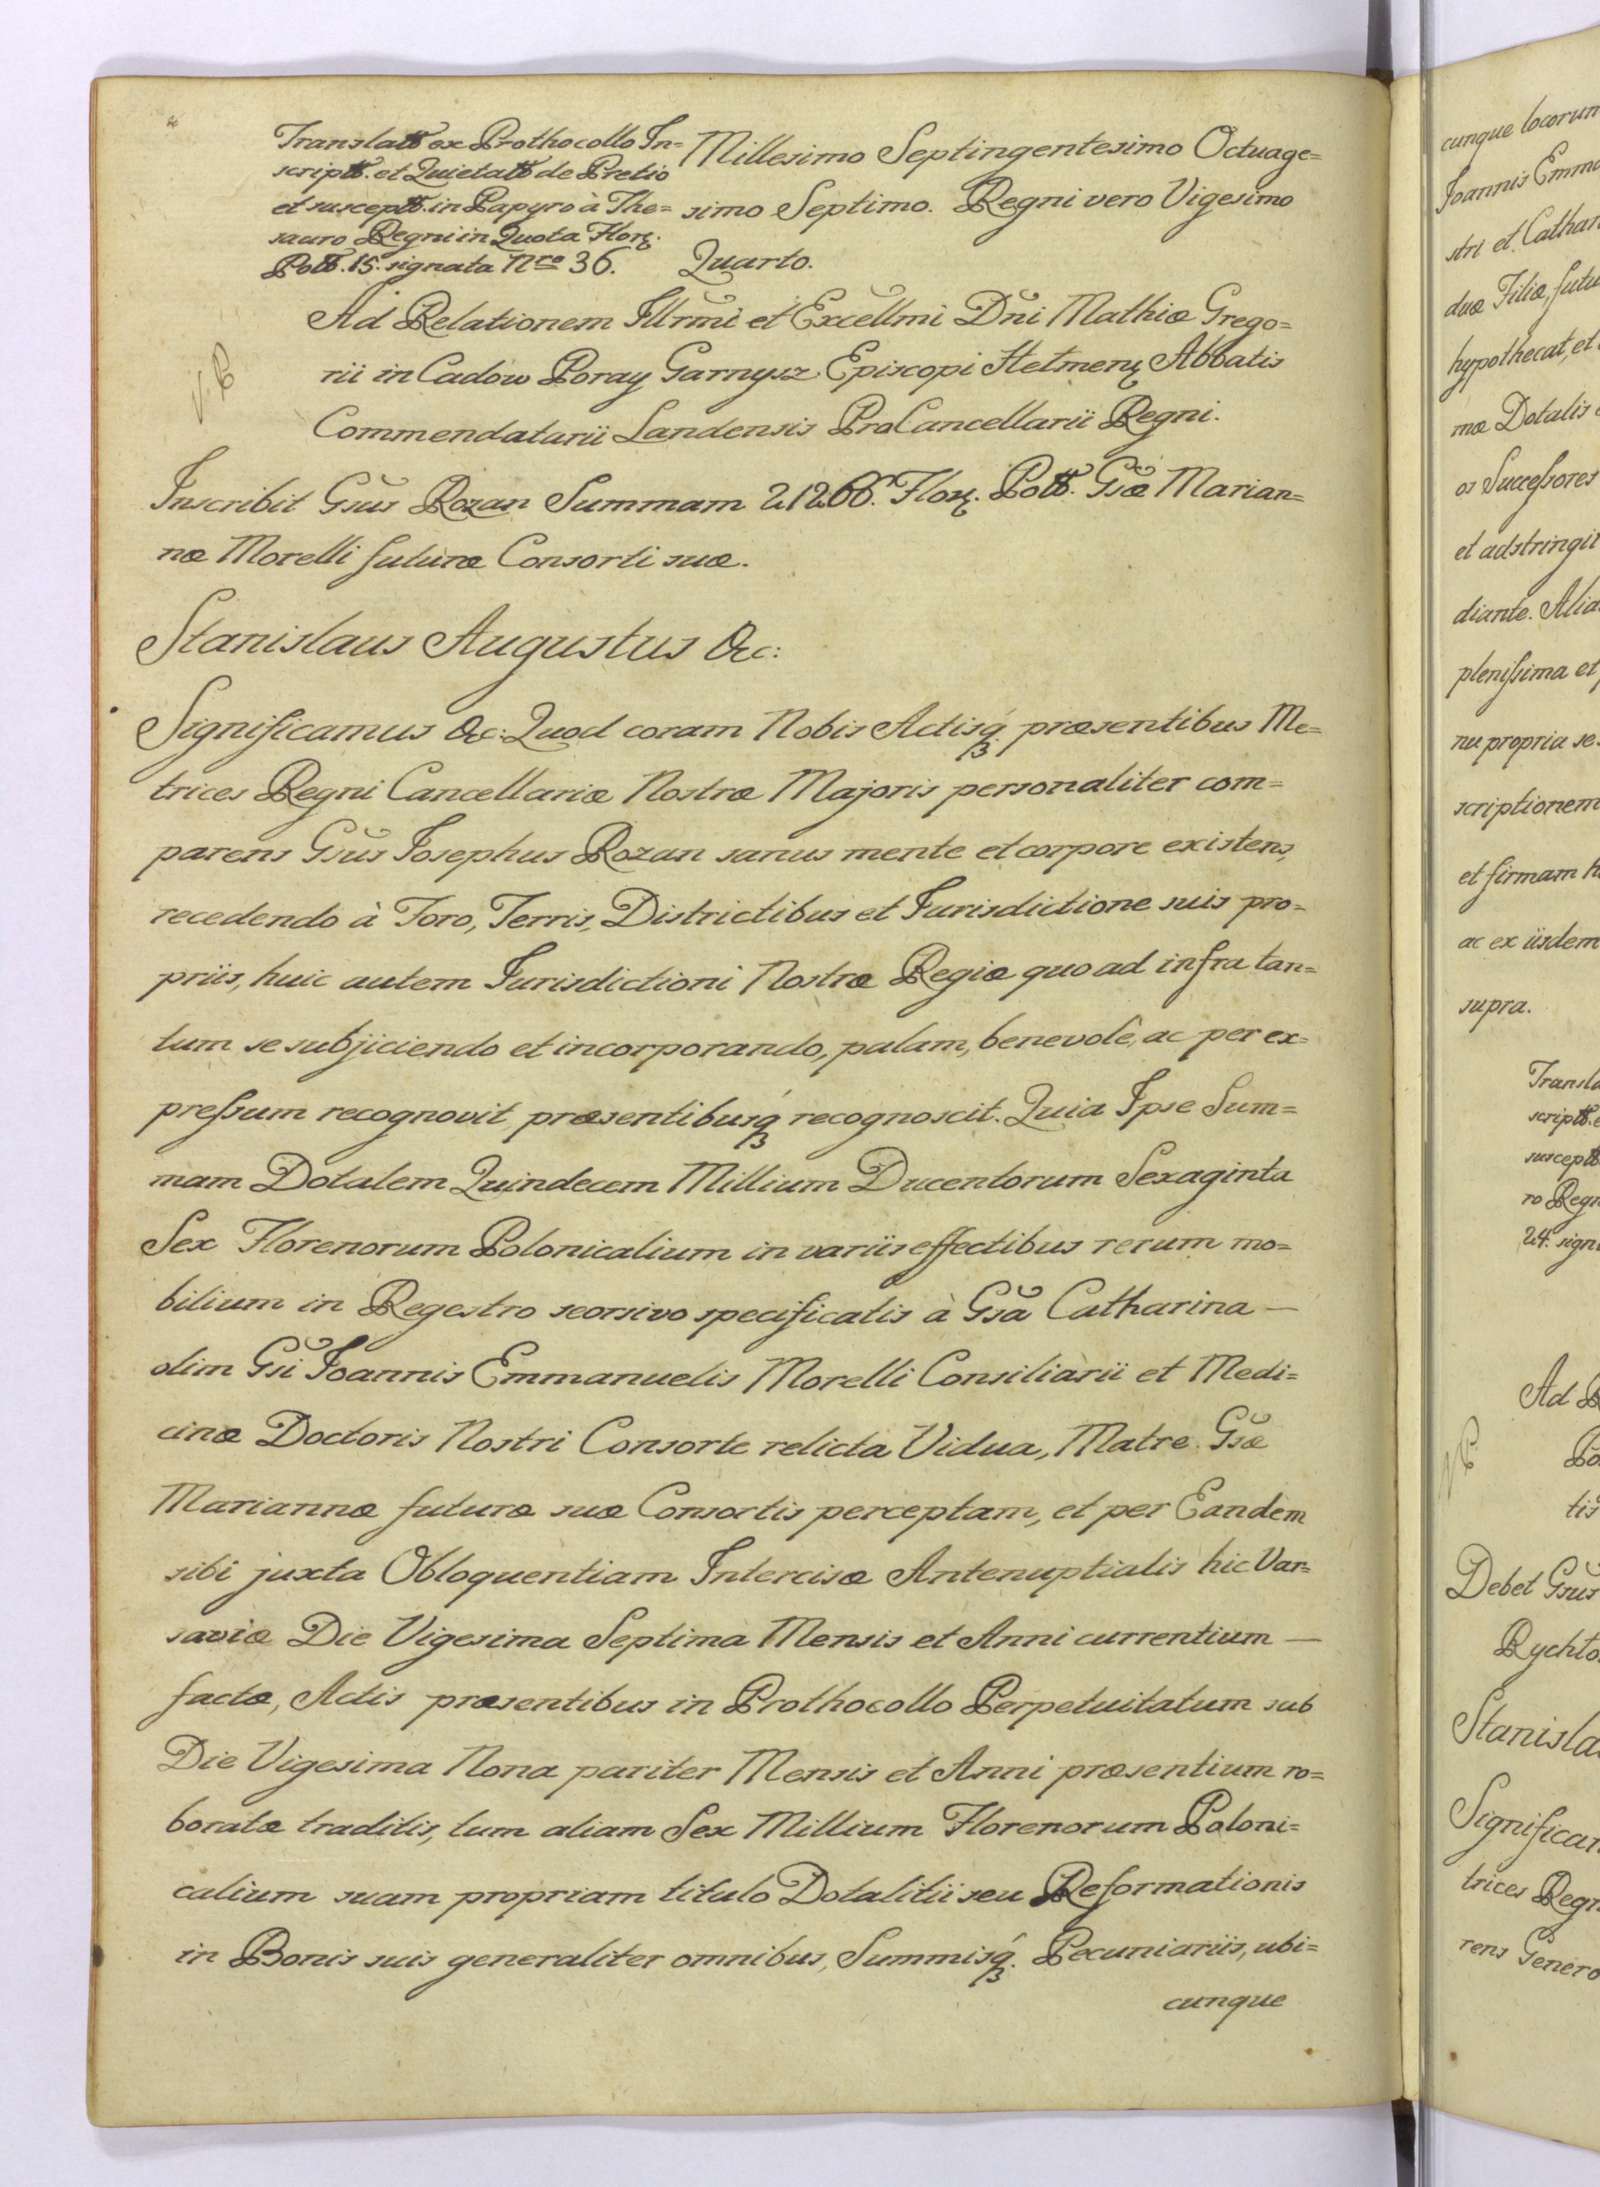 Translatt ex Prothocollo In=
scriptt. et Quietatt de Pretio
et susceptt. in Papyro à The=
sauro Regni in Quota Flor.
Poltt. 15. signata Nro 36.
Millesimo Septingentesimo Octuage=
simo Septimo. Regni vero Vigesimo
Quarto.
Ad Relationem Illrmi et Excellmi Dni Mathiæ Grego=
rii in Cadow Poray Garnysz Episcopi Hetmen Abbatis
Commendatarii Landensis ProCancellarii Regni.
V. P
Inscribit Gsus Rozan Summam 21266. Flor. Poltt. Gsæ Marian=
næ Morelli futuræ Consorti suæ.
Stanislaus Augustus &c:
Significamus &c: Quod coram Nobis Actisq́ præsentibus Me=
trices Regni Cancellariæ Nostræ Majoris personaliter com=
parens Gsus Josephus Rozan sanus mente et corpore existens,
recedendo à Foro, Terris, Districtibus et Jurisdictione suis pro=
priis, huic autem Jurisdictioni Nostræ Regiæ quo ad infra tan=
tum se subjiciendo et incorporando, palam, benevolè, ac per ex=
pressum recognovit præsentibusq́ recognoscit. Quia Ipse Sum=
mam Dotalem Quindecem Millium Ducentorum Sexaginta
Sex Florenorum Polonicalium in variis effectibus rerum mo=
bilium in Regestro seorsivo specificatis à Gsa Catharina —
olim Gsi Joannis Emmanuelis Morelli Consiliarii et Medi=
cinæ Doctoris Nostri Consorte relicta Vidua, Matre Gsæ
Mariannæ futuræ suæ Consortis perceptam, et per Eandem
sibi juxta Obloquentiam Intercisæ Antenuptialis hic Var=
saviæ Die Vigesima Septima Mensis et Anni currentium —
factæ, Actis præsentibus in Prothocollo Perpetuitatum sub
Die Vigesima Nona pariter Mensis et Anni præsentium ro=
boratæ traditis, tum aliam Sex Millium Florenorum Poloni=
calium suam propriam titulo Dotalitii seu Reformationis
in Bonis suis generaliter omnibus, Summisq́. Pecuniariis, ubi=
cunque
cunque locorum
Joannis Emma
stri et Cathar
duæ Filiæ, futu
hypothecat, et
mæ Dotalis
os Successores
et adstringit
diante. Alia
plenissima et
nu propria se
scriptionem
et firmam h
ac ex iisdem
supra.
Transla
scriptt. e
susceptt
ro Regn
24. sign
Ad R
Po
tis
Debet Gsus
Rychto
Stanisla
Significan
trices Regn
rens Genero